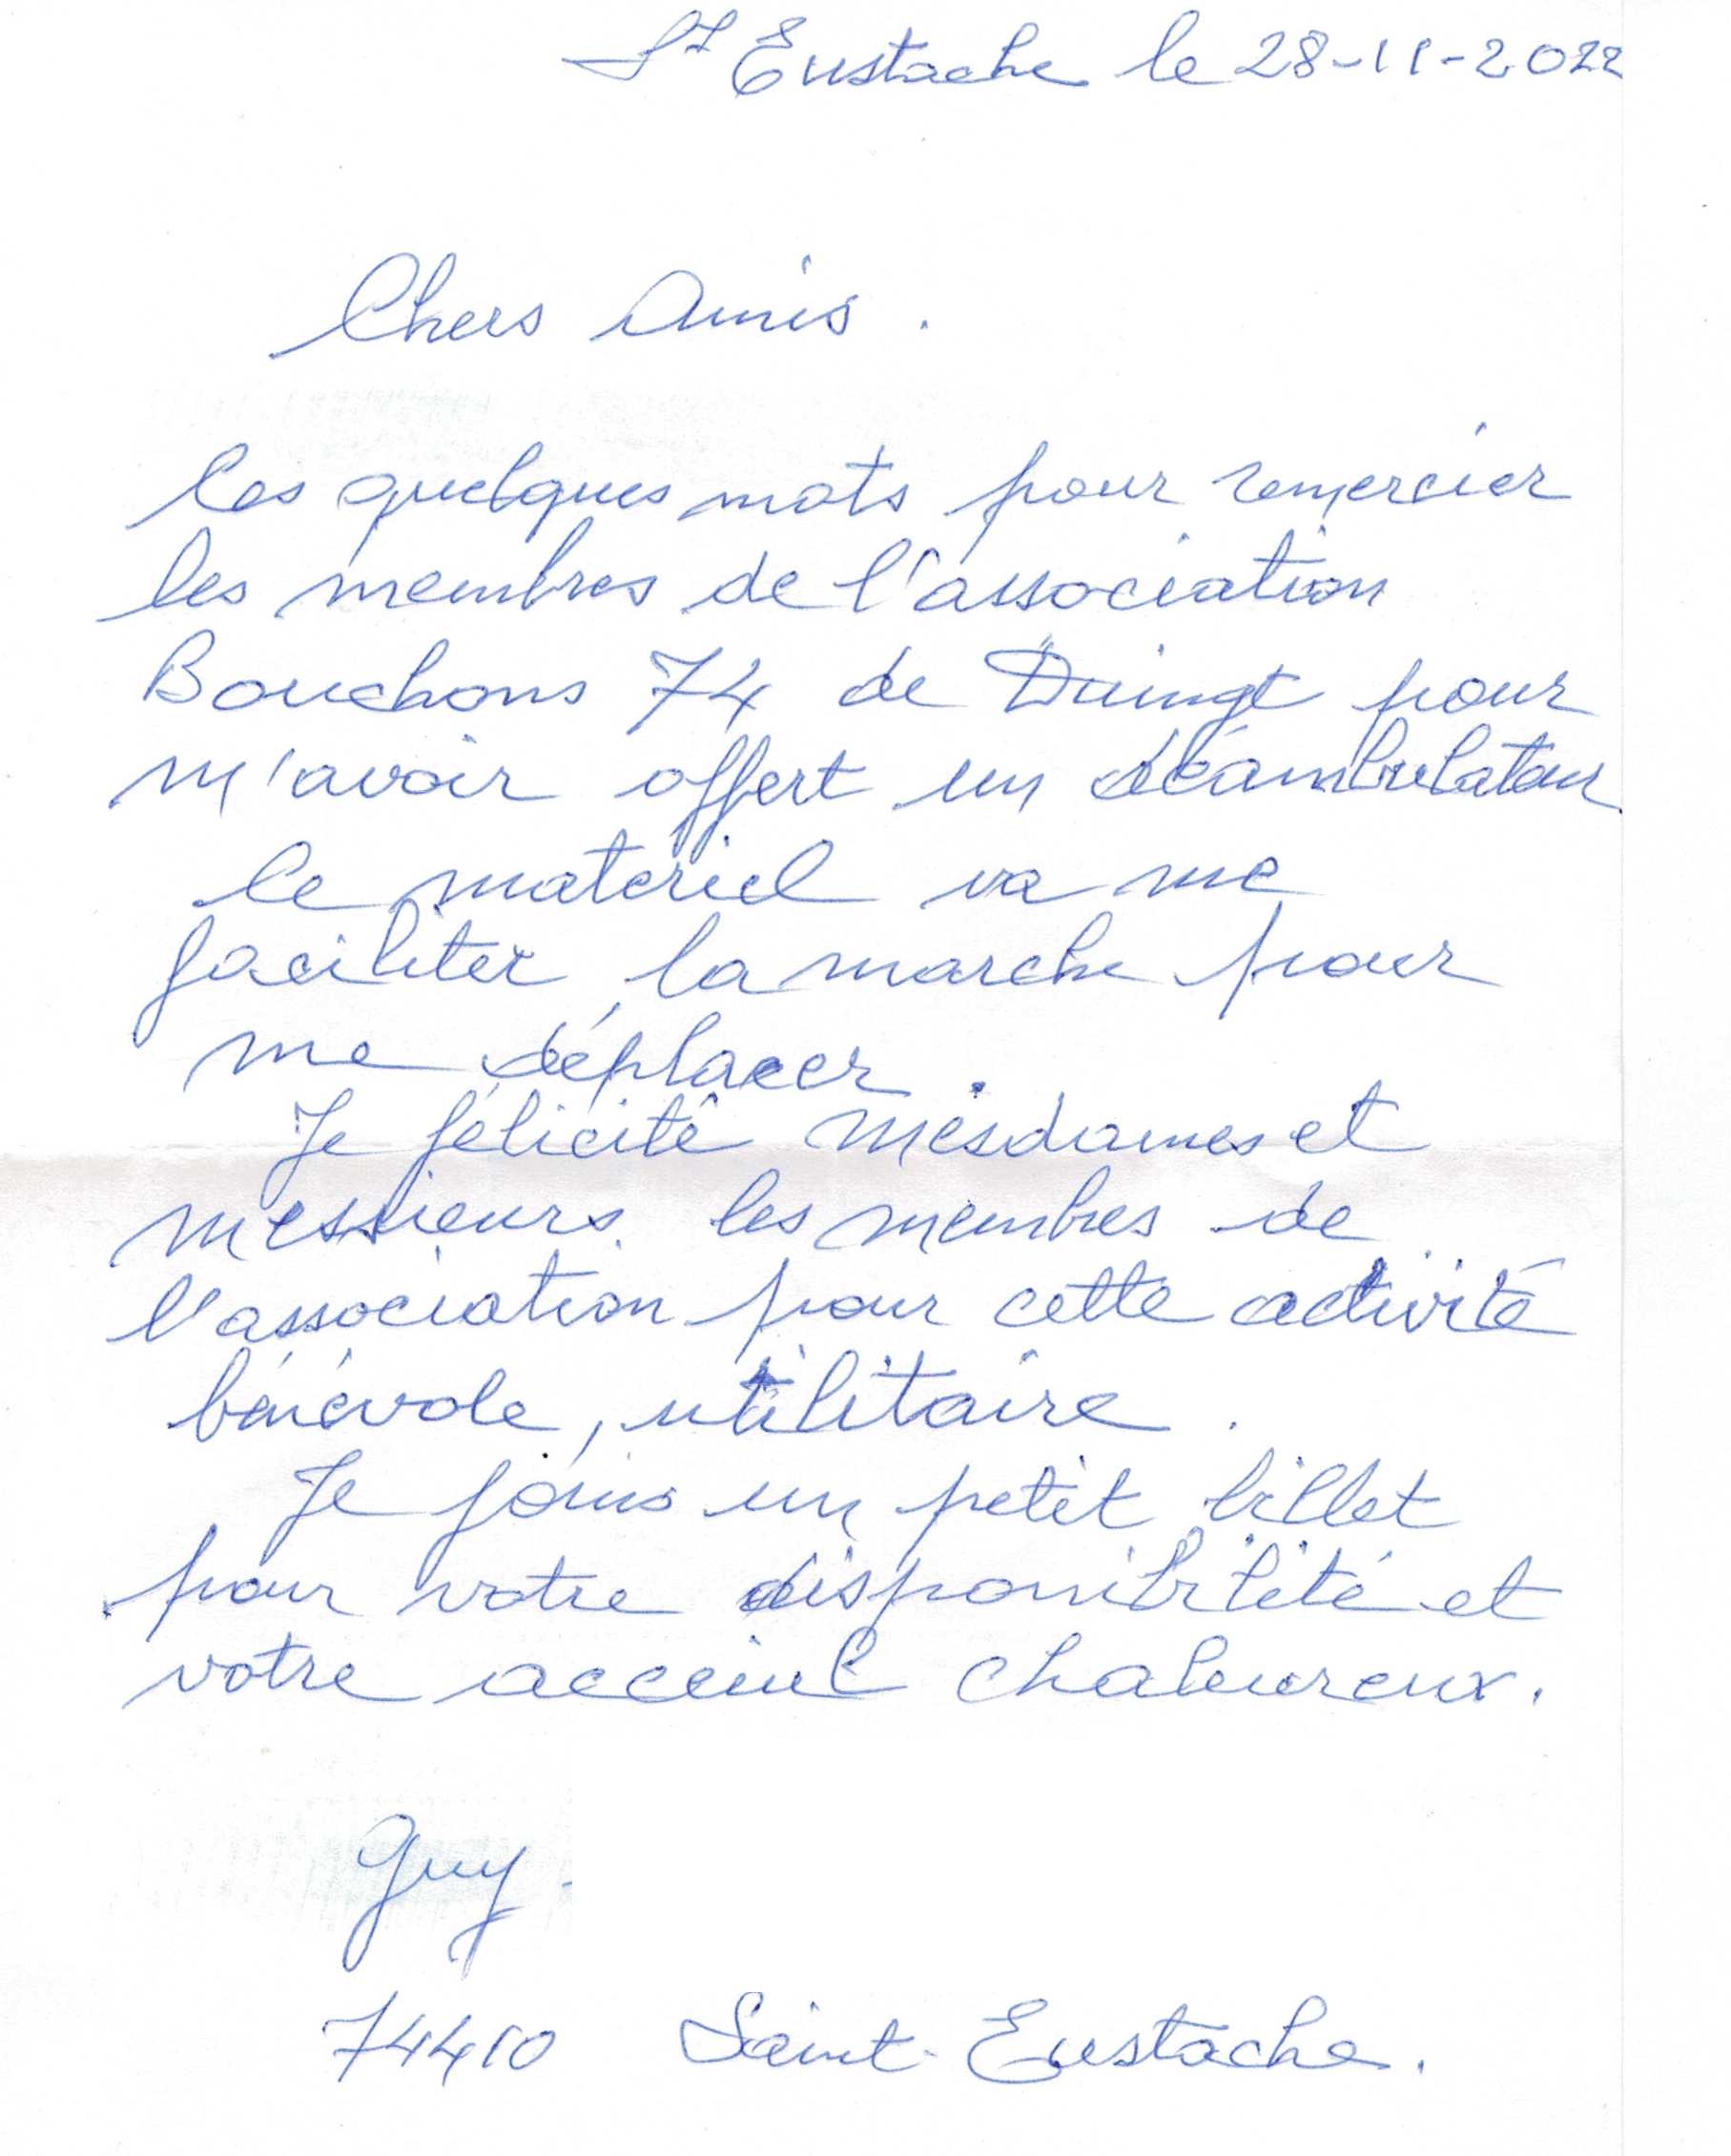 St Eustache le 28-11-2022
Chers Amis.
Ces quelques mots pour remercier
les membres de l'association
Bouchons 74 de Duingt pour
m'avoir offert un déambulateur
Ce materiel va me
faciliter la marche pour
me déplacer.
Je félicite mesdames et
messieurs les membres de
l'association pour cette activité
bénévole, utilitaire.
Je joins un petit billet
pour votre disponibilité et
votre acceuil chaleureux.
Guy
74410 Saint-Eustache.